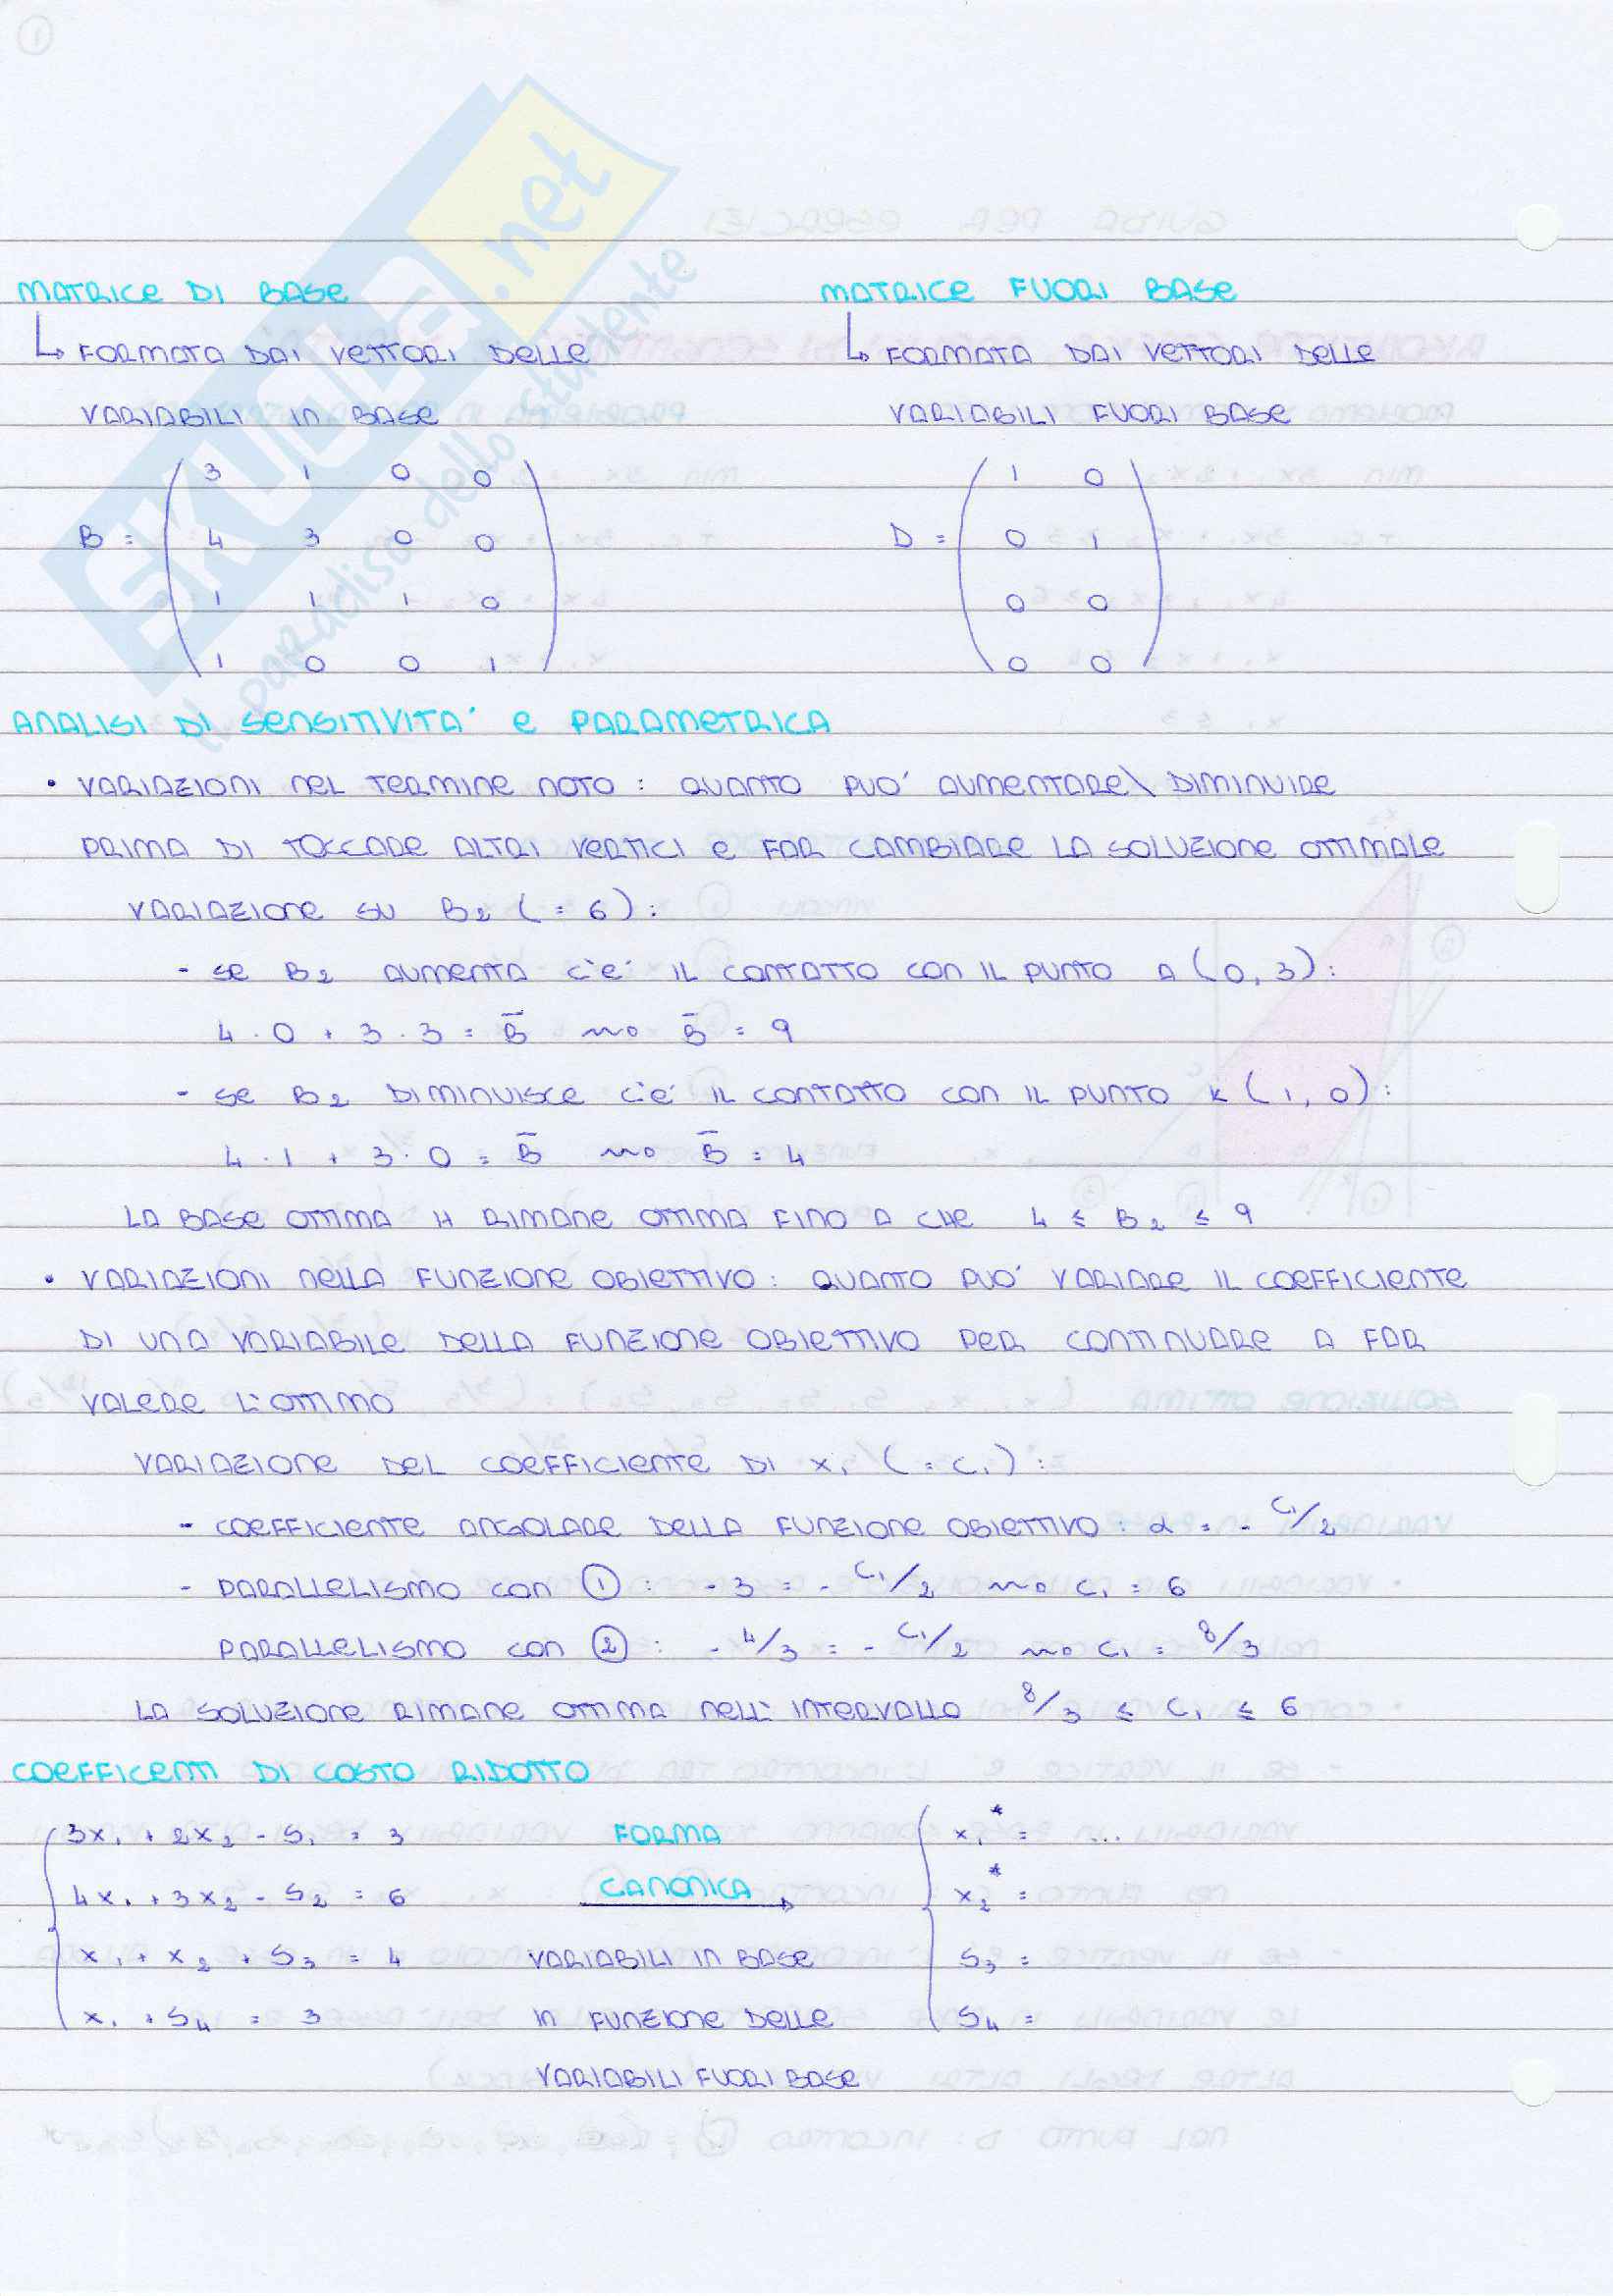 SKUOLA.net
il paradiso dello studente
MATRICE DI BASE
MATRICE FUORI BASE
↳ FORMATA DAI VETTORI DELLE
VARIABILI IN BASE
↳ FORMATA DAI VETTORI DELLE
VARIABILI FUORI BASE
B = ( 3 1 0 0
4 3 0 0
1 1 1 0
1 0 0 1 )
D = ( 1 0
0 1
0 0
0 0 )
ANALISI DI SENSITIVITA' E PARAMETRICA
• VARIAZIONI NEL TERMINE NOTO : QUANTO PUO' AUMENTARE\ DIMINUIRE
PRIMA DI TOCCARE ALTRI VERTICI E FAR CAMBIARE LA SOLUZIONE OTTIMALE
VARIAZIONE SU B₂ (= 6) :
- SE B₂ AUMENTA C'E' IL CONTATTO CON IL PUNTO A (0, 3) :
4 · 0 + 3 · 3 = B̄ ⟿ B̄ = 9
- SE B₂ DIMINUISCE C'E' IL CONTATTO CON IL PUNTO K (1, 0) :
4 · 1 + 3 · 0 = B̄ ⟿ B̄ = 4
LA BASE OTTIMA H RIMANE OTTIMA FINO A CHE 4 ≤ B₂ ≤ 9
• VARIAZIONI NELLA FUNZIONE OBIETTIVO : QUANTO PUO' VARIARE IL COEFFICIENTE
DI UNA VARIABILE DELLA FUNZIONE OBIETTIVO PER CONTINUARE A FAR
VALERE L'OTTIMO
VARIAZIONE DEL COEFFICIENTE DI x₁ (= C₁) :
- COEFFICIENTE ANGOLARE DELLA FUNZIONE OBIETTIVO : α = - C₁/2
- PARALLELISMO CON ① : - 3 = - C₁/2 ⟿ C₁ = 6
PARALLELISMO CON ② : - 4/3 = - C₁/2 ⟿ C₁ = 8/3
LA SOLUZIONE RIMANE OTTIMA NELL' INTERVALLO 8/3 ≤ C₁ ≤ 6
COEFFICENTI DI COSTO RIDOTTO
{ 3x₁ + 2x₂ - S₁ = 3
4x₁ + 3x₂ - S₂ = 6
x₁ + x₂ + S₃ = 4
x₁ + S₄ = 3
FORMA
CANONICA →
VARIABILI IN BASE
IN FUNZIONE DELLE
VARIABILI FUORI BASE
{ x₁* = ...
x₂* =
S₃ =
S₄ =